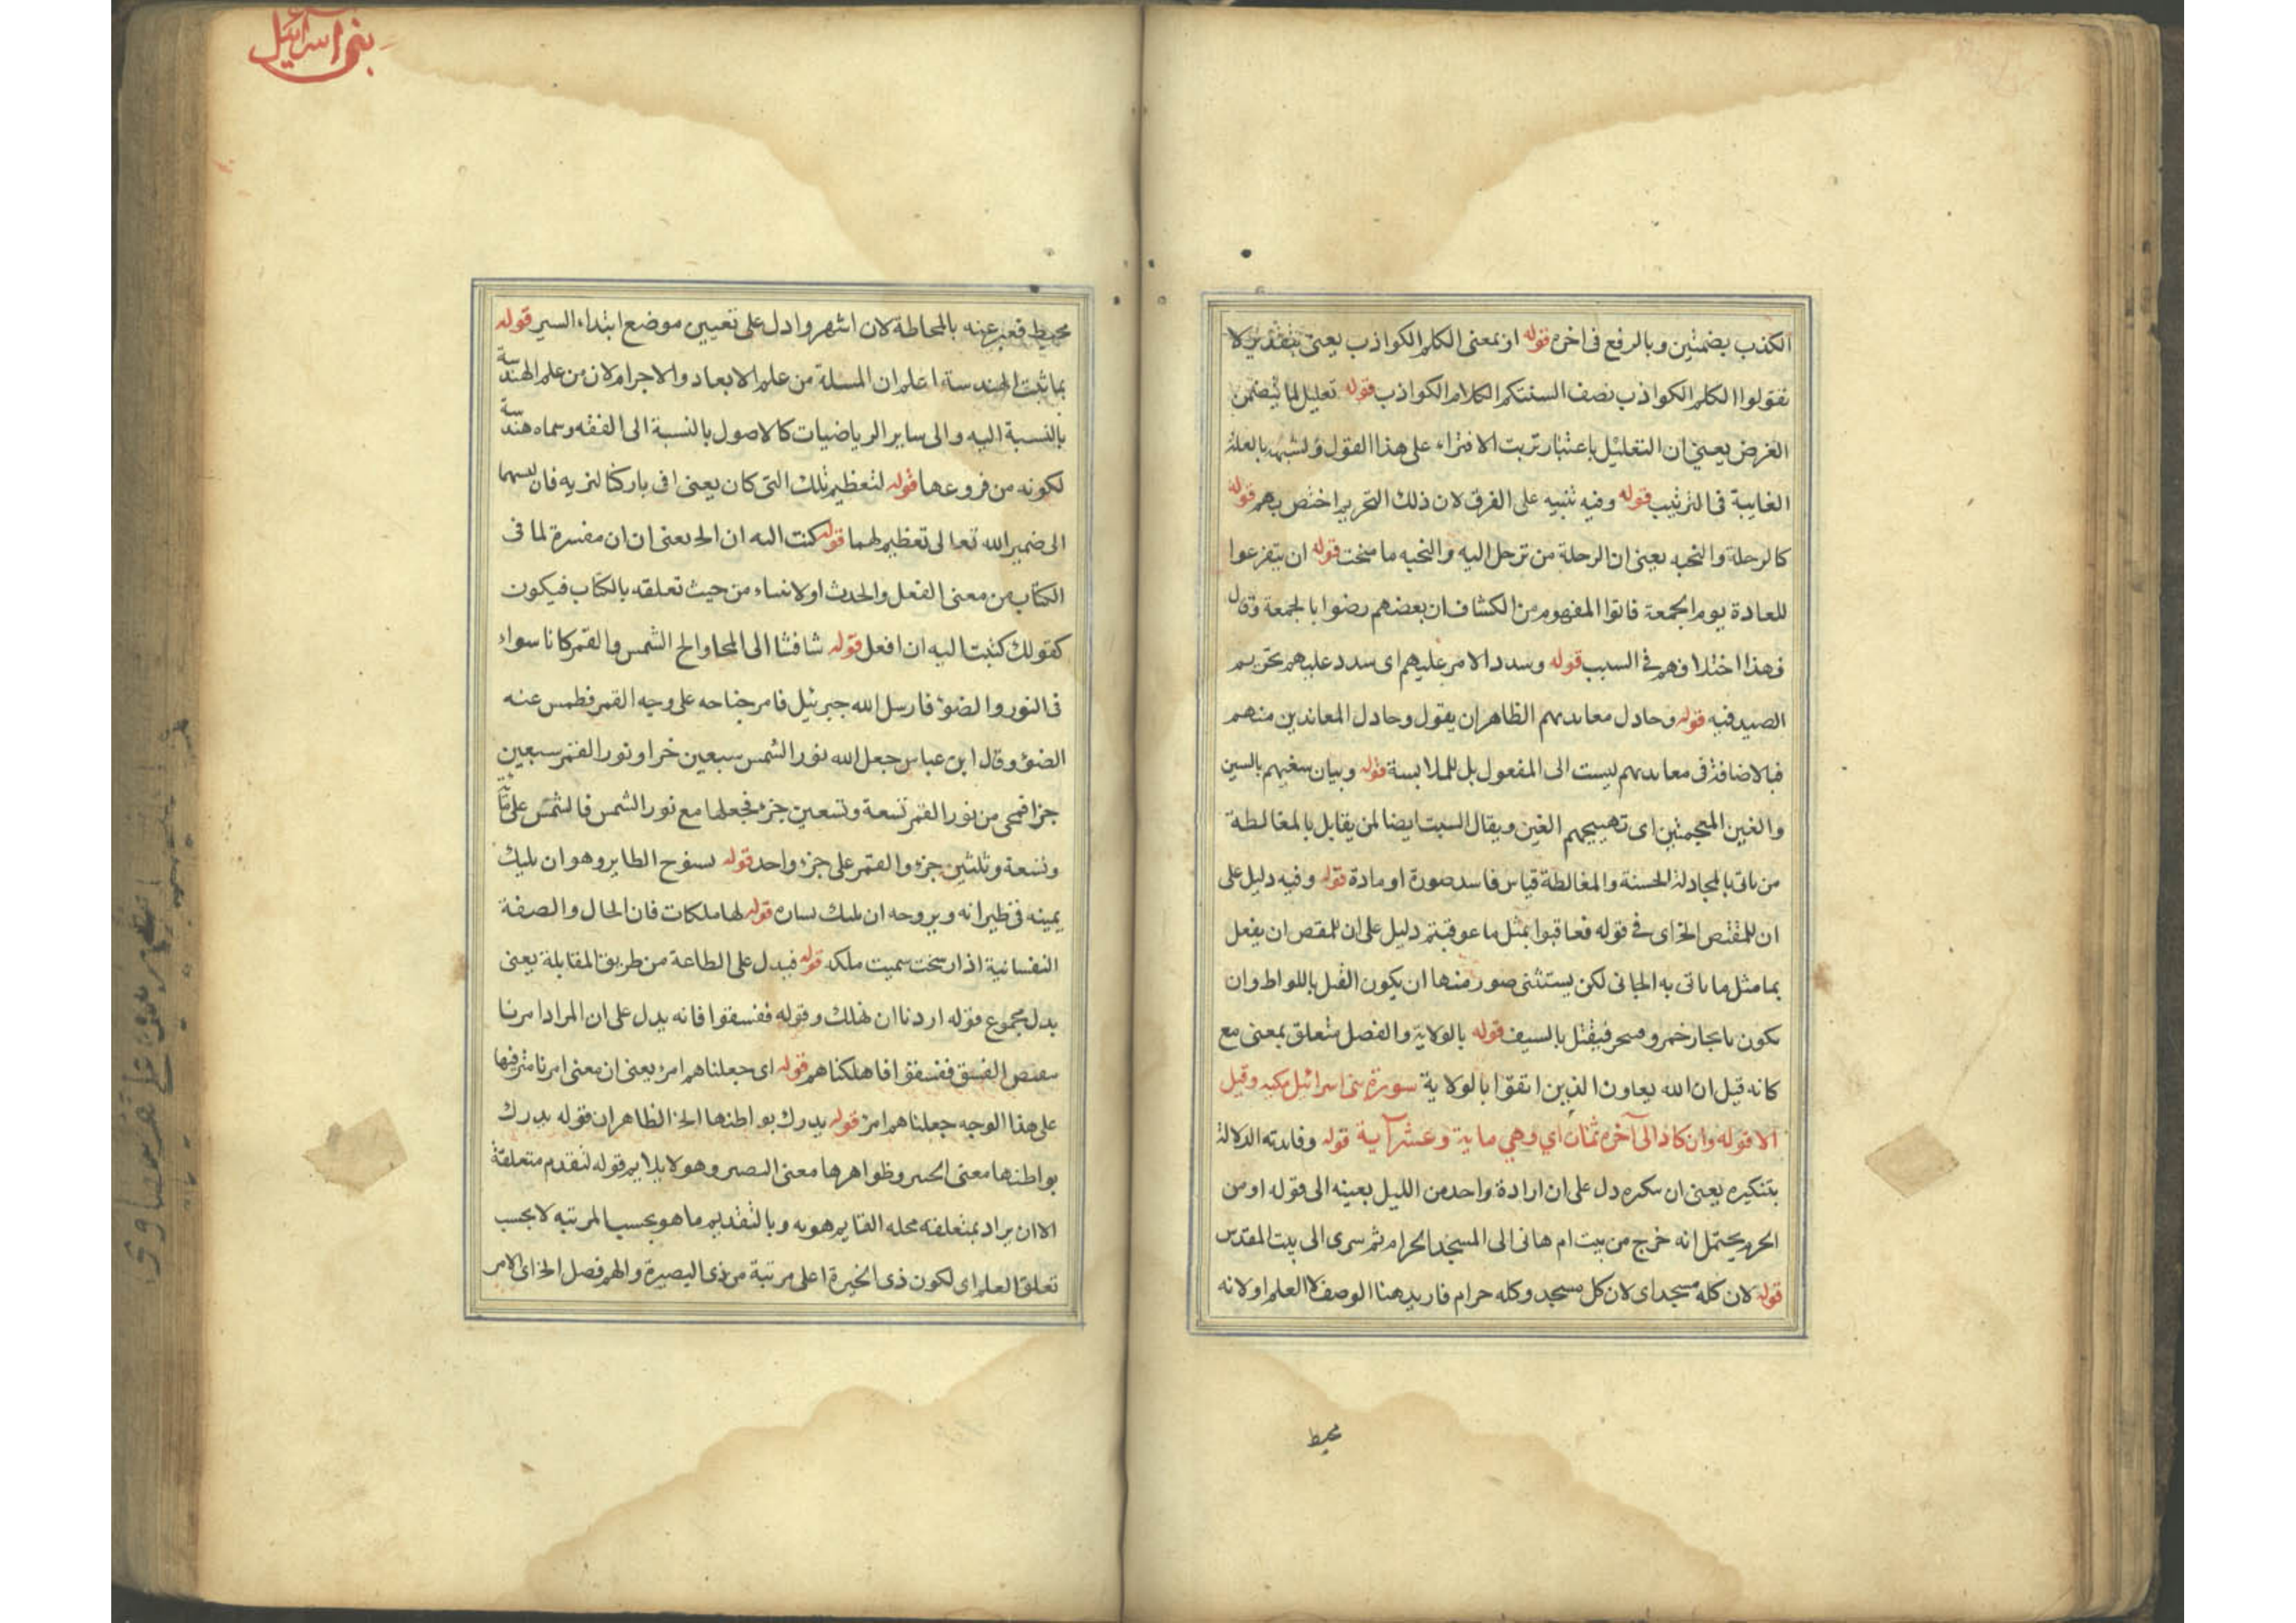 الكذب بضمتين وبالرفع فى اخره قوله او بمعنى الكلم الكواذب يعنى بتقدير لا
تقولوا الكلم الكواذب تصف السنتكم الكلام الكواذب قوله تعليل لما يتضمن
الغرض يعنى ان التعليل باعتبار ترتب الافتراء على هذا القول ولشبهه بالعلة
الغايبة فى الترتيب قوله وفيه تنبيه على الفرق لان ذلك التحريم اختص بهم قوله
كالرحلة والنخبه يعنى ان الرحلة من ترحل اليه والنخبه ما قوله ان يتفرغوا
للعادة يوم الجمعة فاتوا المفهوم من الكشاف ان بعضهم رضوا بالجمعة وقال
فهذا اختلافهم فى السبب قوله وسدد الامر عليهم اى سدد عليهم بتحريم
الصيد فيه قوله وجادل معاندهم الظاهر ان يقول وجادل المعاندين منهم
فبالاضافة فى معاندهم ليست الى المفعول بل للملابسة قوله وبيان سغبهم بالسين
والغين المعجمتين اى تهييجهم الغين ويقال السبت ايضا لمن يقابل بالمغالطة
من ياتى بالمجادلة الحسنة والمغالطة قياس فاسد صورة او مادة قوله وفيه دليل على
ان للمقتص الخ اى فى قوله فعاقبوا بمثل ما عوقبتم دليل على ان للمقتص ان يفعل
بما مثل ما ياتى به الجانى لكن يستثنى صور منها ان يكون القتل باللواط وان
يكون بايجار خمر وسحر فيقتل بالسيف قوله بالولاية والفضل متعلق بمعنى مع
كانه قيل ان الله يعاون الذين اتقوا بالولاية سورة بنى اسرائيل مكيه وقيل
الا قوله وان كاد الى آخره ثمان آي وهي ماية وعشر آية قوله وفايدته الدلالة
بتنكيره يعنى ان نكره دل على ان ارادة واحد من الليل بعينه الى قوله او من
الحرم يحتمل انه خرج من بيت ام هانى الى المسجد الحرام ثم سرى الى بيت المقدس
قوله لان كله مسجد اى لان كل مسجد وكله حرام فاريد هنا الوصف لا العلم او لانه
محيط
بنى اسرائيل
محيط فعبر عنه بالمحاطة لان اشهر وادل على تعيين موضع ابتداء السير قوله
بما ثبت الهندسة اعلم ان المسلة من علم الابعاد والاجرام لان من علم الهندسة
بالنسبة اليه والى ساير الرياضيات كالاصول بالنسبة الى الفقه وسماه هندسة
لكونه من فروعها قوله لتعظيم تلك التى كان يعنى فى باركنا لنريه فان نسبها
الى ضمير الله تعالى تعظيم لهما قوله كتبت اليه ان الخ يعنى ان ان مفسرة لما فى
الكتاب من معنى الفعل والحدث اولانساء من حيث تعلقه بالكتاب فيكون
كقولك كتبت اليه ان افعل قوله شافشا الى المحاوالخ الشمس والقمر كانا سواء
فى النور والضوء فارسل الله جبرئيل فامر جناحه على وجه القمر فطمس عنه
الضوء وقال ابن عباس جعل الله نور الشمس سبعين جزا ونور القمر سبعين
جزا فمحى من نور القمر تسعة وتسعين جزء فجعلها مع نور الشمس فالشمس على مائة
وتسعة وثلثين جزء والقمر على جزء واحد قوله بسنوح الطاير وهو ان يليك
يمينه فى طيرانه وبروحه ان يليك يساره قوله لها ملكات فان الحال والصفة
النفسانية اذا رسخت سميت ملكه قوله فيدل على الطاعة من طريق المقابلة يعنى
يدل مجموع قوله اردنا ان نهلك وقوله ففسقوا فانه يدل على ان المراد امرنا
الفسق ففسقوا فاهلكناهم قوله اى جعلناهم امر يعنى ان معنى امرنا مترفيها
على هذا الوجه جعلناهم امر قوله يدرك بواطنها الخ الظاهر ان قوله يدرك
بواطنها معنى الخبير وظواهرها معنى البصير وهو لا يلايم قوله لتقدم متعلقة
الا ان يراد بمتعلقه محله القايم هو به وبالتقديم ما هو بحسب المرتبه لا بحسب
تعلق العلم اى لكون ذى الخبرة اعلى مرتبة من ذى البصيرة والهم فصل الخ اى الامر